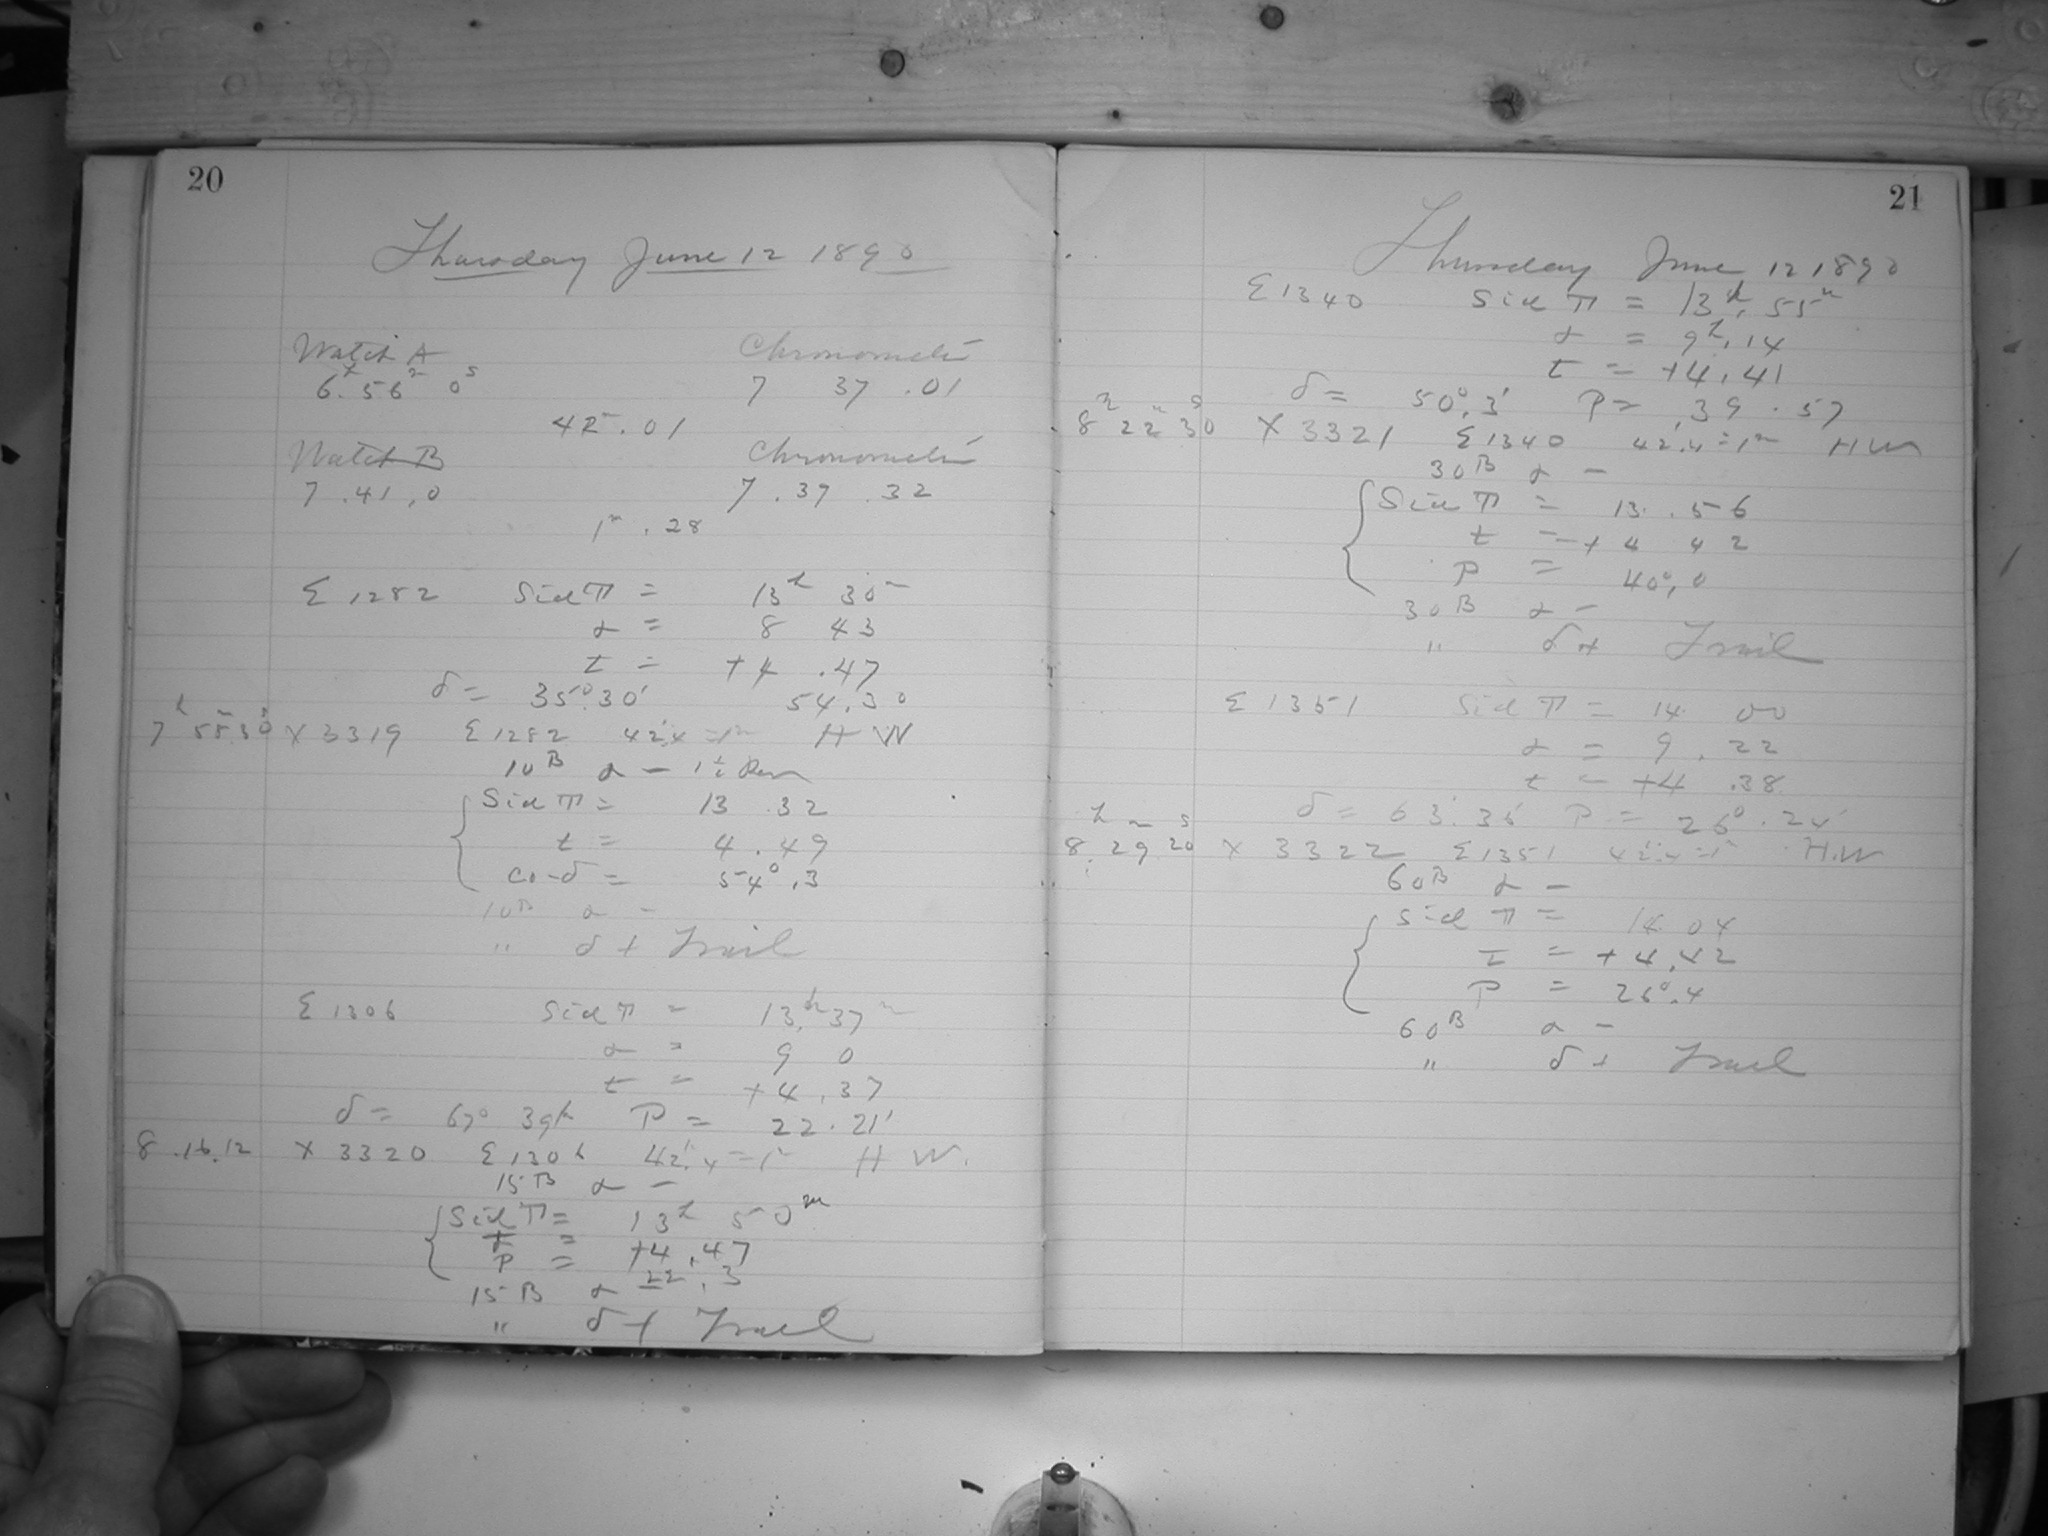 20
Thursday June 12 1890
Watch A Chronometer
6h. 56m 0s 7 37 .01
42m.01
Watch B Chronometer
7 .41 .0 7 .37 .32
1m .28
Σ 1282 Sid T = 13h 30m
α = 8 43
t = +4 .47
δ = 35°30' 54.30
7h 55m 30s X 3319 Σ 1282 42'.4 = 1m H W
10B α - 1½ Rev
Sid T = 13 .32
t = 4 .49
co-δ = 54°.3
10B α -
" δ + Trail
Σ 1306 Sid T = 13h.37m
α = 9 0
t = +4 .37
δ = 67° 39' P = 22.21'
8 .16.12 X 3320 Σ 1306 42'.4 = 1m H W.
15B α -
Sid T = 13h 50m
t = +4 .47
P = 22 .3
15B α
" δ + Trail
21
Thursday June 12 1890
Σ 1340 Sid T = 13h. 55m
α = 9h.14
t = +4.41
δ = 50°.3' P = 39 .57
8h 22m 30s X 3321 Σ 1340 42'.4 = 1m HW
30B α -
Sid T = 13 .56
t = + 4 42
P = 40°.0
30B α -
" δ + Trail
Σ 1351 Sid T = 14 00
α = 9 .22
t = +4 .38
δ = 63°.36' P = 26°.24'
8h 29m 20s X 3322 Σ 1351 42'.4 = 1m H.W
60B α -
Sid T = 14 04
t = + 4.42
P = 26°.4
60B α -
" δ + Trail